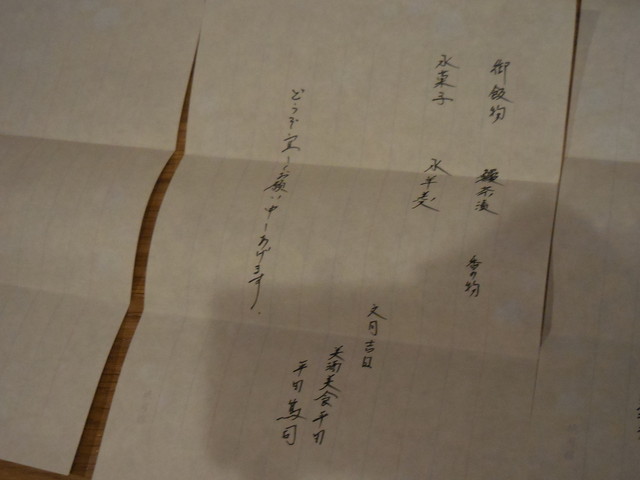 御飯物 鰻茶漬 香の物
水菓子 水羊羹
文月吉日
美酒美食平田
平田篤司
どうぞ宜しく お願い申しあげます。